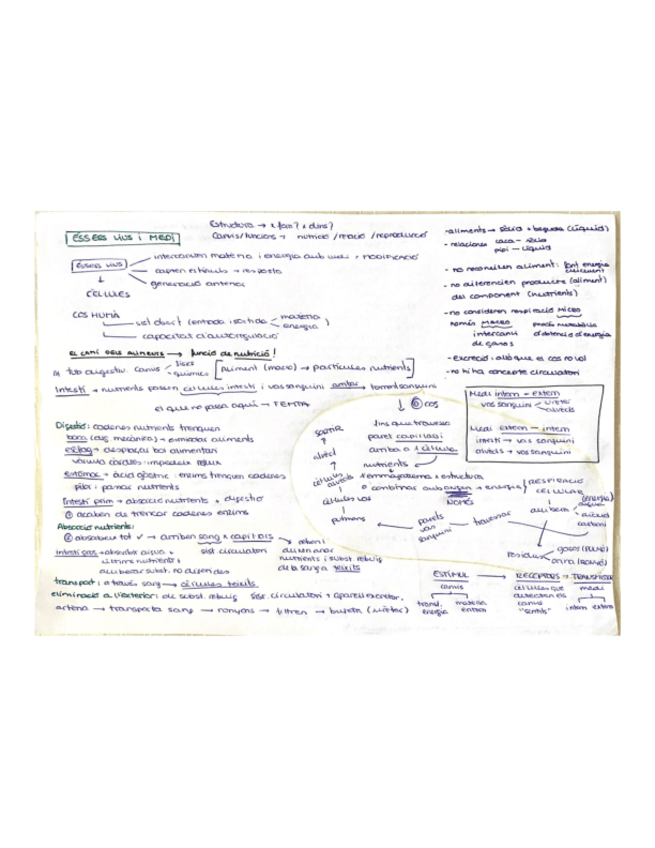 Estructura → x fora? x dins?
Canvis/funcions → nutrició / relació / reproducció
ÉSSERS VIUS I MEDI
ÉSSERS VIUS
intercanvien matèria i energia amb
capten estímuls → resposta
generació anterior
↓
CÈL·LULES
COS HUMÀ
sist. obert (entrada i sortida matèria energia)
capacitat d'autoregulació
EL CAMÍ DELS ALIMENTS → funció de nutrició!
tub digestiu. Canvis físics químics [Aliment (macro) → partícules nutrients]
Intestí → nutrients passen cèl·lules intestí i vas sanguini torrent sanguini
el que no passa aquí → FEMTA
↓ cos
Digestió: cadenes nutrients trenquen
boca (dig. mecànica) → esmicolar aliments
esòfag → desplaçar bol alimentari
vàlvula càrdies: impedeix reflux
estómac → àcid gàstric: enzims trenquen cadenes
pílor: passar nutrients
Intestí prim → absorció nutrients + digestió
① acaben de trencar cadenes enzims
Absorció nutrients:
② absorbeix tot ✓ → arriben sang x capil·lars
sist. circulatori
Intestí gros → absorbir aigua +
últims nutrients i
alliberar subst. no digerides
nutrients i subst. rebuig
de la sang a teixits
transport: a través sang → cèl·lules teixits
eliminació a l'exterior: de subst. rebuig sist. circulatori + aparell excretor.
artèria → transporta sang → ronyons → filtren → bufeta (urèter)
SORTIR
↑
alvèol
↑
cèl·lules alvèols
cèl·lules vas
pulmons
fins que travessa
paret capil·lars
arriba a 1 cèl·lula
nutrients
emmagatzema: estructura
o combinar amb oxigen → energia
NOMÉS
RESPIRACIÓ
CEL·LULAR
↓
allibera
energia
aigua
diòxid
carboni
parets
vas
sanguini
travessar
residus
gasos (pulmó)
orina (ronyó)
-aliments → sòlid + beguda (líquid)
- relacionen caca - sòlid
pipí - líquid
- no reconeixen aliment: font energia creixement
- no diferencien producte (aliment)
del component (nutrients)
- no consideren respiració MICRO
només MACRO
intercanvi
de gasos
procés metabòlic
d'obtenció d'energia
- excreció: allò que el cos no vol
- no hi ha concepte circulatori
Medi intern - extern
vas sanguini urèter alvèols
Medi extern - intern
intestí → vas sanguini
alvèols → vas sanguini
ESTÍMUL → RECEPTORS → TRANSMISSOR
canvis
transf. energia
matèria entorn
cèl·lules que
detecten els
canvis
"sentits"
medi
intern extern